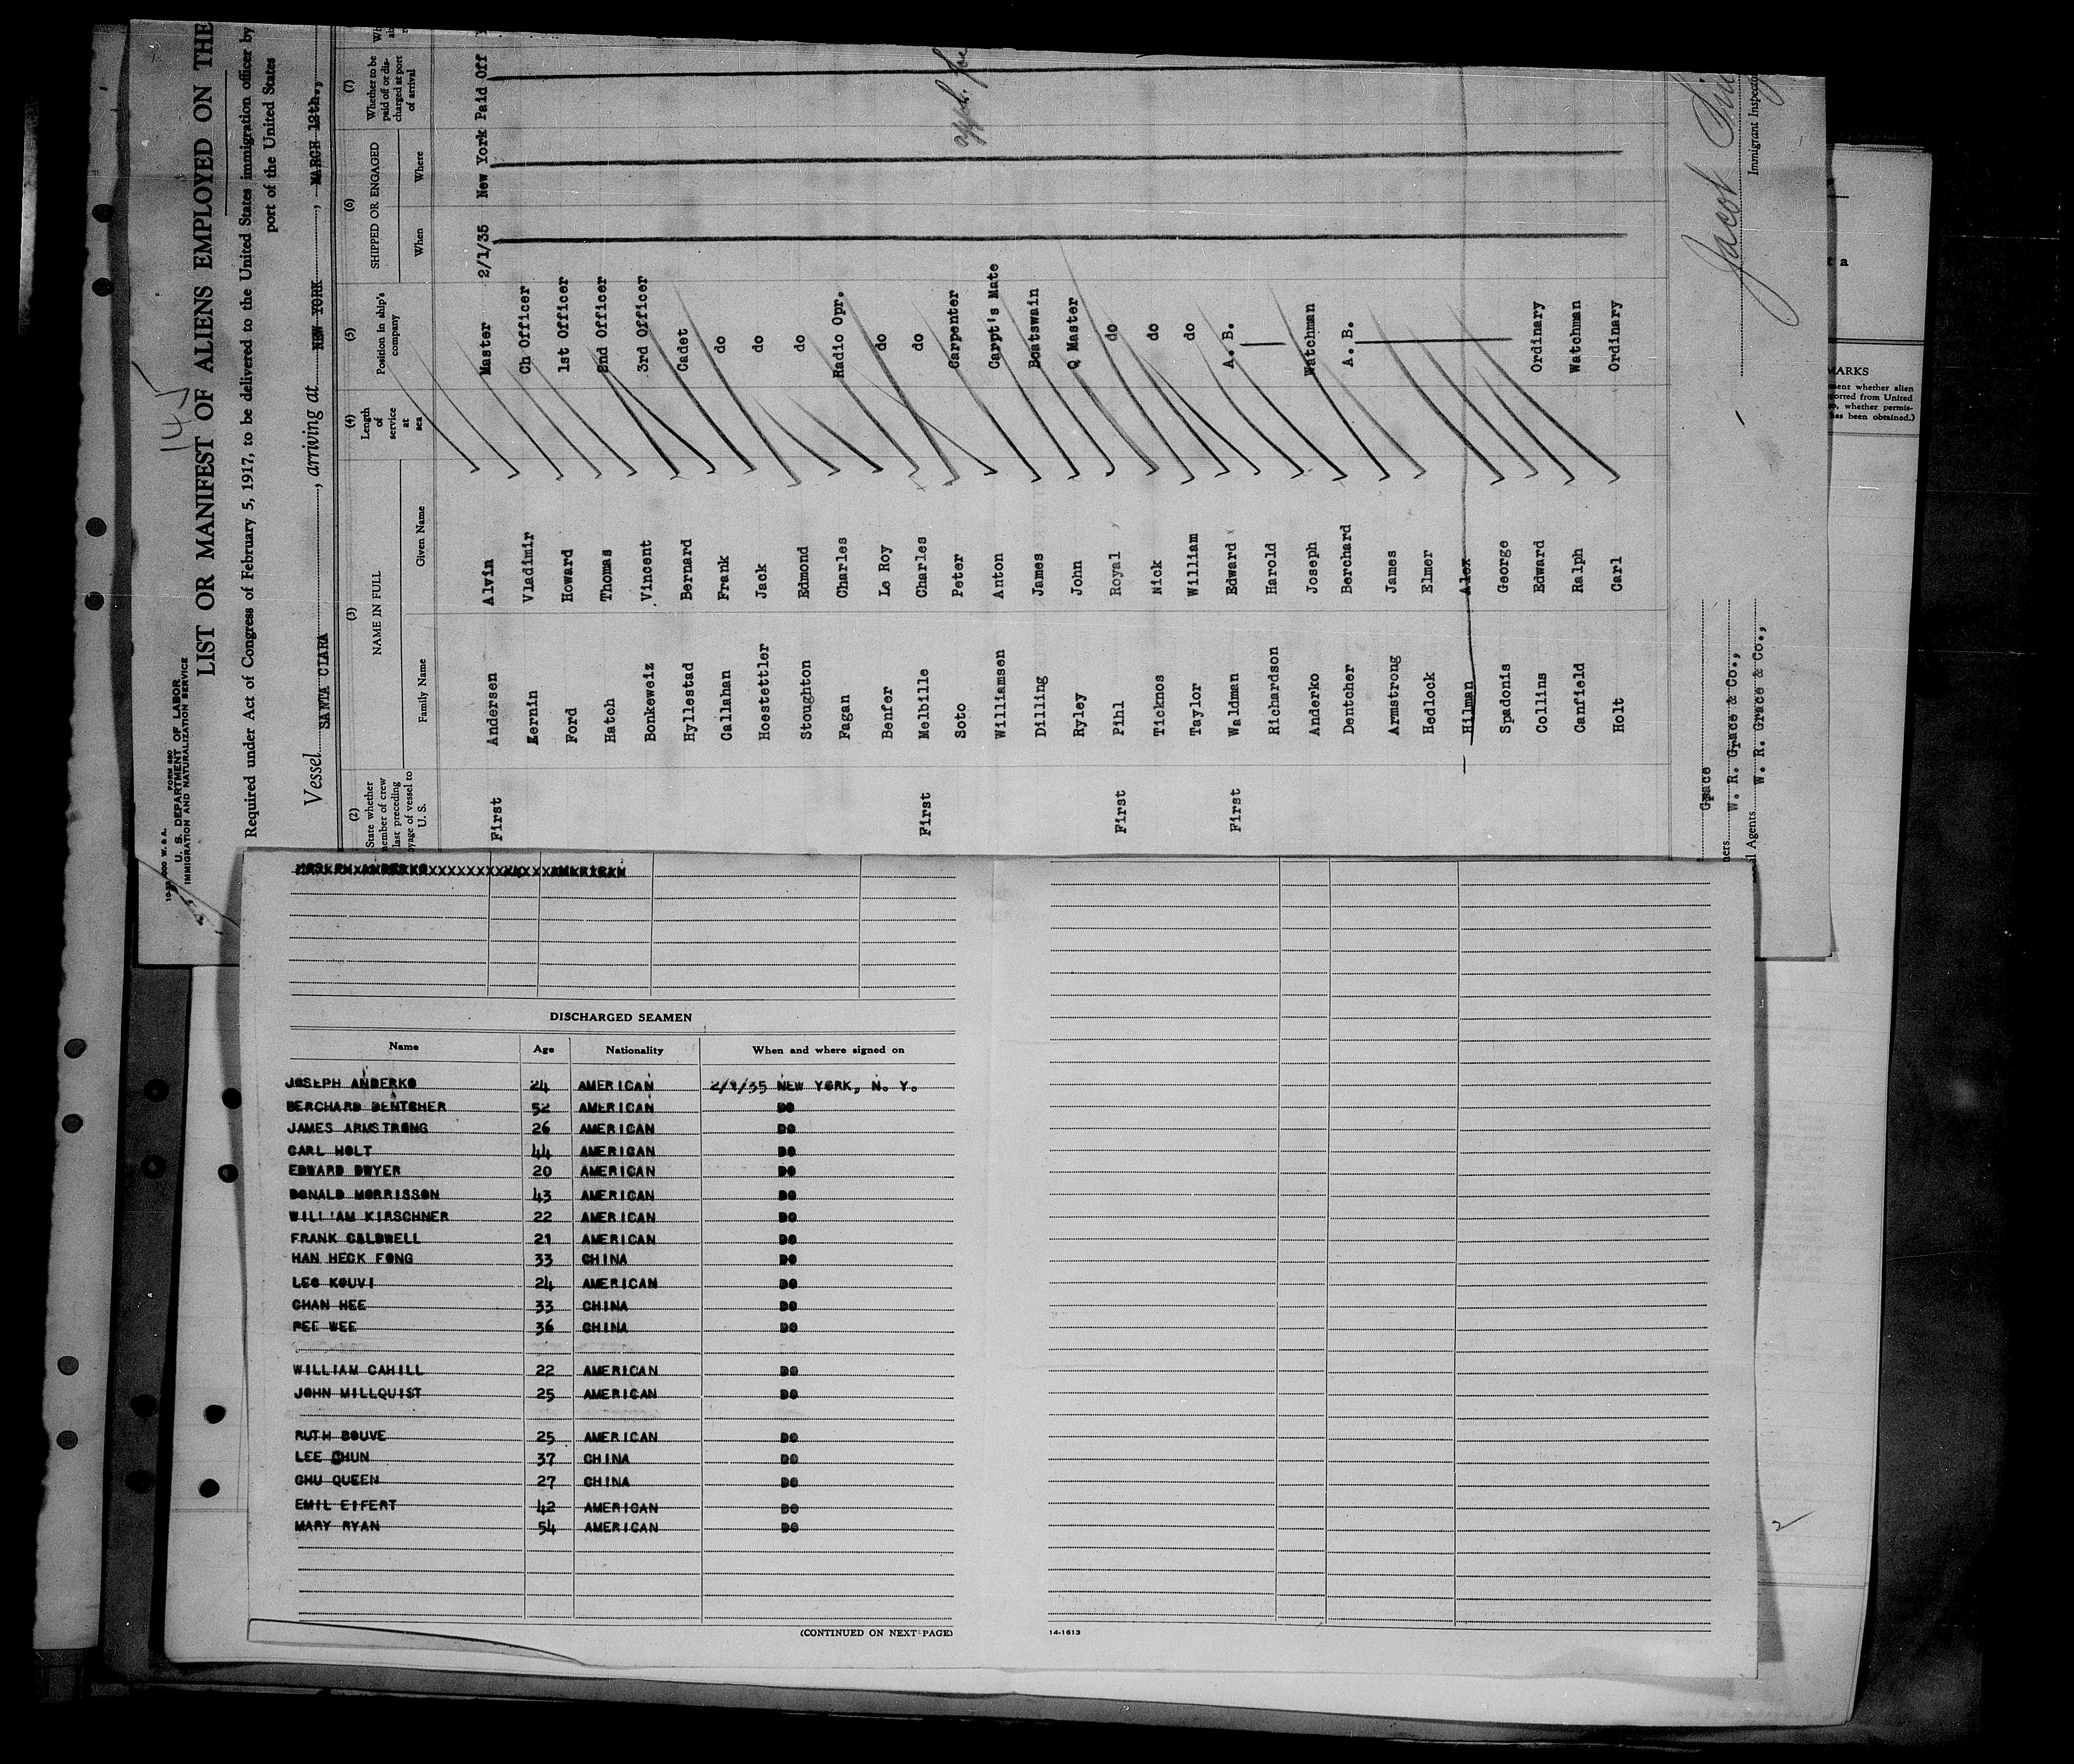 145
10-22-200 W. B. A. FORM 680
U. S. DEPARTMENT OF LABOR
IMMIGRATION AND NATURALIZATION SERVICE
LIST OR MANIFEST OF ALIENS EMPLOYED ON THE
Required under Act of Congress of February 5, 1917, to be delivered to the United States immigration officer by
port of the United States
Vessel SANTA CLARA, arriving at NEW YORK, MARCH 12th.,
(2) (3) (4) (5) (6) (7)
State whether member of crew last preceding voyage of vessel to U. S.
NAME IN FULL
Family Name Given Name
Length of service at sea
Position in ship's company
SHIPPED OR ENGAGED
When Where
Whether to be paid off or discharged at port of arrival
First Andersen Alvin Master 2/1/35 New York Paid Off
Zernin Vladimir Ch Officer
Ford Howard 1st Officer
Hatch Thomas 2nd Officer
Bonkeweiz Vincent 3rd Officer
Hyllestad Bernard Cadet
Callahan Frank do
Hoestettler Jack do
Stoughton Edmond do
Fagan Charles Radio Opr.
Benfer Le Roy do
First Melbille Charles do
Soto Peter Carpenter
Williamsen Anton Carpt's Mate
Dilling James Boatswain
Ryley John Q Master
First Pihl Royal do
Ticknos Nick do
Taylor William do
First Waldman Edward A. B.
Richardson Harold
Anderko Joseph Watchman
Dentcher Berchard A. B.
Armstrong James
Hedlock Elmer
Hilman Alex
Spadonis George
Collins Edward Ordinary
Canfield Ralph Watchman
Holt Carl Ordinary
Grace
W. R. Grace & Co.,
Agents W. R. Grace & Co.,
Jacob
Immigrant Inspector
JOSEPH ANDERKO AMERICAN
DISCHARGED SEAMEN
Name Age Nationality When and where signed on
JOSEPH ANDERKO 24 AMERICAN 2/1/35 NEW YORK, N. Y.
BERCHARD DENTCHER 52 AMERICAN DO
JAMES ARMSTRONG 26 AMERICAN DO
CARL HOLT 44 AMERICAN DO
EDWARD DWYER 20 AMERICAN DO
DONALD MORRISSON 43 AMERICAN DO
WILLIAM KIRSCHNER 22 AMERICAN DO
FRANK CALDWELL 21 AMERICAN DO
HAN HECK FONG 33 CHINA DO
LEO KOUVI 24 AMERICAN DO
CHAN HEE 33 CHINA DO
PEE WEE 36 CHINA DO
WILLIAM CAHILL 22 AMERICAN DO
JOHN MILLQUIST 25 AMERICAN DO
RUTH BOUVE 25 AMERICAN DO
LEE CHUN 37 CHINA DO
CHU QUEEN 27 CHINA DO
EMIL EIFERT 42 AMERICAN DO
MARY RYAN 54 AMERICAN DO
(CONTINUED ON NEXT PAGE)
14-1613
2